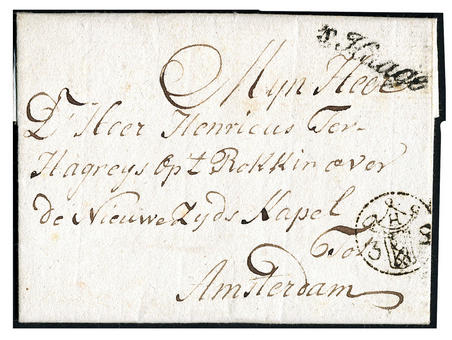 s Haage
Mijn Heer
D' Heer Henricus Ter-
Hagreys op t Rokkin over
de Nieuwe Zyds Kapel
Tot
Amsterdam
3 S